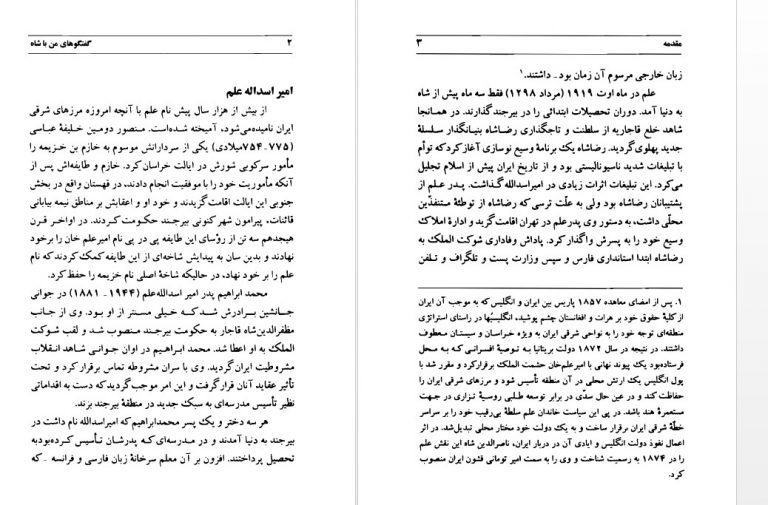 ۲ گفتگوهای من با شاه
امیر اسداله علم
از بیش از هزار سال پیش نام علم با آنچه امروزه مرزهای شرقی
ایران نامیده می‌شود، آمیخته شده‌است. منصور دومین خلیفهٔ عباسی
(۷۷۵-۷۵۴میلادی) یکی از سردارانش موسوم به خازم بن خزیمه را
مأمور سرکوبی شورش در ایالت خراسان کرد. خازم و طایفه‌اش پس از
آنکه مأموریت خود را با موفقیت انجام دادند، در قهستان واقع در بخش
جنوبی این ایالت اقامت گزیدند و خود او و اعقابش بر مناطق نیمه بیابانی
قائنات، پیرامون شهر کنونی بیرجند حکومت کردند. در اواخر قرن
هیجدهم سه تن از رؤسای این طایفه پی در پی نام امیرعلم خان را برخود
نهادند و بدین سان به پیدایش شاخه‌ای از این طایفه کمک کردند که نام
علم را بر خود نهاد، در حالیکه شاخهٔ اصلی نام خزیمه را حفظ کرد.
محمد ابراهیم پدر امیر اسدالله‌علم (۱۹۴۴- ۱۸۸۱) در جوانی
جانشین برادرش شد که خیلی مسن‌تر از او بود. وی از جانب
مظفرالدین‌شاه قاجار به حکومت بیرجند منصوب شد و لقب شوکت
الملک به او اعطا شد. محمد ابراهیم در اوان جوانی شاهد انقلاب
مشروطیت ایران گردید. وی با سران مشروطه تماس برقرار کرد و تحت
تأثیر عقاید آنان قرارگرفت و این امر موجب گردید که دست به اقداماتی
نظیر تأسیس مدرسه‌ای به سبک جدید در منطقهٔ بیرجند بزند.
هر سه دختر و یک پسر محمدابراهیم که امیراسدالله نام داشت در
بیرجند به دنیا آمدند و در مدرسه‌ای که پدرشان تأسیس کرده‌بود به
تحصیل پرداختند. افزون بر آن معلم سرخانهٔ زبان فارسی و فرانسه - که
مقدمه ۳
زبان خارجی مرسوم آن زمان بود - داشتند.۱
علم در ماه اوت ۱۹۱۹ (مرداد ۱۲۹۸) فقط سه ماه پیش از شاه
به دنیا آمد. دوران تحصیلات ابتدائی را در بیرجند گذارند. در همانجا
شاهد خلع قاجاریه از سلطنت و تاجگذاری رضاشاه بنیانگذار سلسلهٔ
جدید پهلوی گردید. رضاشاه یک برنامهٔ وسیع نوسازی آغاز کرد که توأم
با تبلیغات شدید ناسیونالیستی بود و از تاریخ ایران پیش از اسلام تجلیل
می‌کرد. این تبلیغات اثرات زیادی در امیراسدالله گذاشت. پدر علم از
پشتیبانان رضاشاه بود ولی به علّت ترسی که رضاشاه از توطئهٔ متنفذّین
محلّی داشت، به دستور وی پدرعلم در تهران اقامت گزید و ادارهٔ املاک
وسیع خود را به پسرش واگذار کرد. پاداش وفاداری شوکت الملک به
رضاشاه ابتدا استانداری فارس و سپس وزارت پست و تلگراف و تلفن
۱. پس از امضای معاهده ۱۸۵۷ پاریس بین ایران و انگلیس که به موجب آن ایران
از کلیهٔ حقوق خود بر هرات و افغانستان چشم پوشید، انگلیسیها در راستای استراتژی
منطقه‌ای توجه خود را به نواحی شرقی ایران به ویژه خراسان و سیستان معطوف
داشتند. در نتیجه در سال ۱۸۷۲ دولت بریتانیا به توصیهٔ افسرانی که به محل
فرستاده‌بود یک پیوند نهانی با امیرعلم‌خان حشمت الملک برقرارکرد و مقرر شد با
پول انگلیس یک ارتش محلی در آن منطقه تأسیس شود و مرزهای شرقی ایران را
حفاظت کند و در عین حال سدّی در برابر توسعه طلبی روسیهٔ تزاری در جهت
مستعمرهٔ هند باشد. در پی این سیاست خاندان علم سلطهٔ بی‌رقیب خود را بر سراسر
خطّهٔ شرقی ایران برقرار ساخت و به یک دولت خود مختار محلی تبدیل‌شد. در اثر
اعمال نفوذ دولت انگلیس و ایادی آن در دربار ایران، ناصرالدین شاه این نقش علم
را در ۱۸۷۴ به رسمیت شناخت و وی را به سمت امیر تومانی قشون ایران منصوب
کرد.